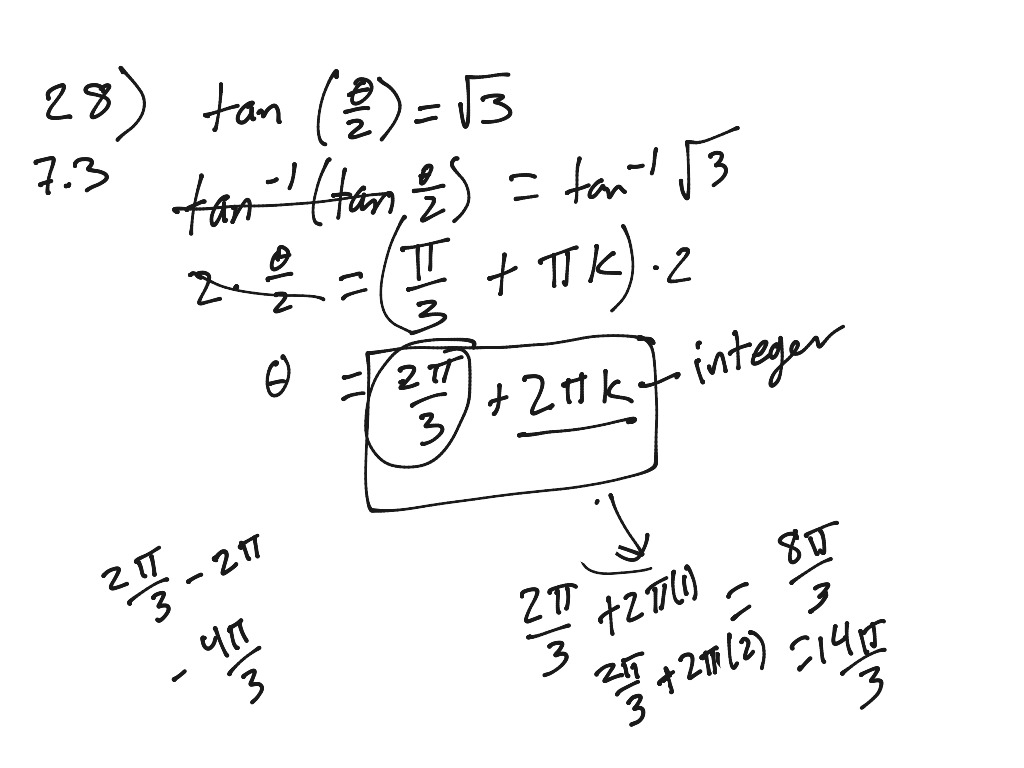 28) tan (θ/2) = √3
7.3 tan⁻¹ (tan θ/2) = tan⁻¹ √3
2 · θ/2 = (π/3 + πk) · 2
θ = 2π/3 + 2πk — integer
2π/3 - 2π
- 4π/3
2π/3 + 2π(1) = 8π/3
2π/3 + 2π(2) = 14π/3